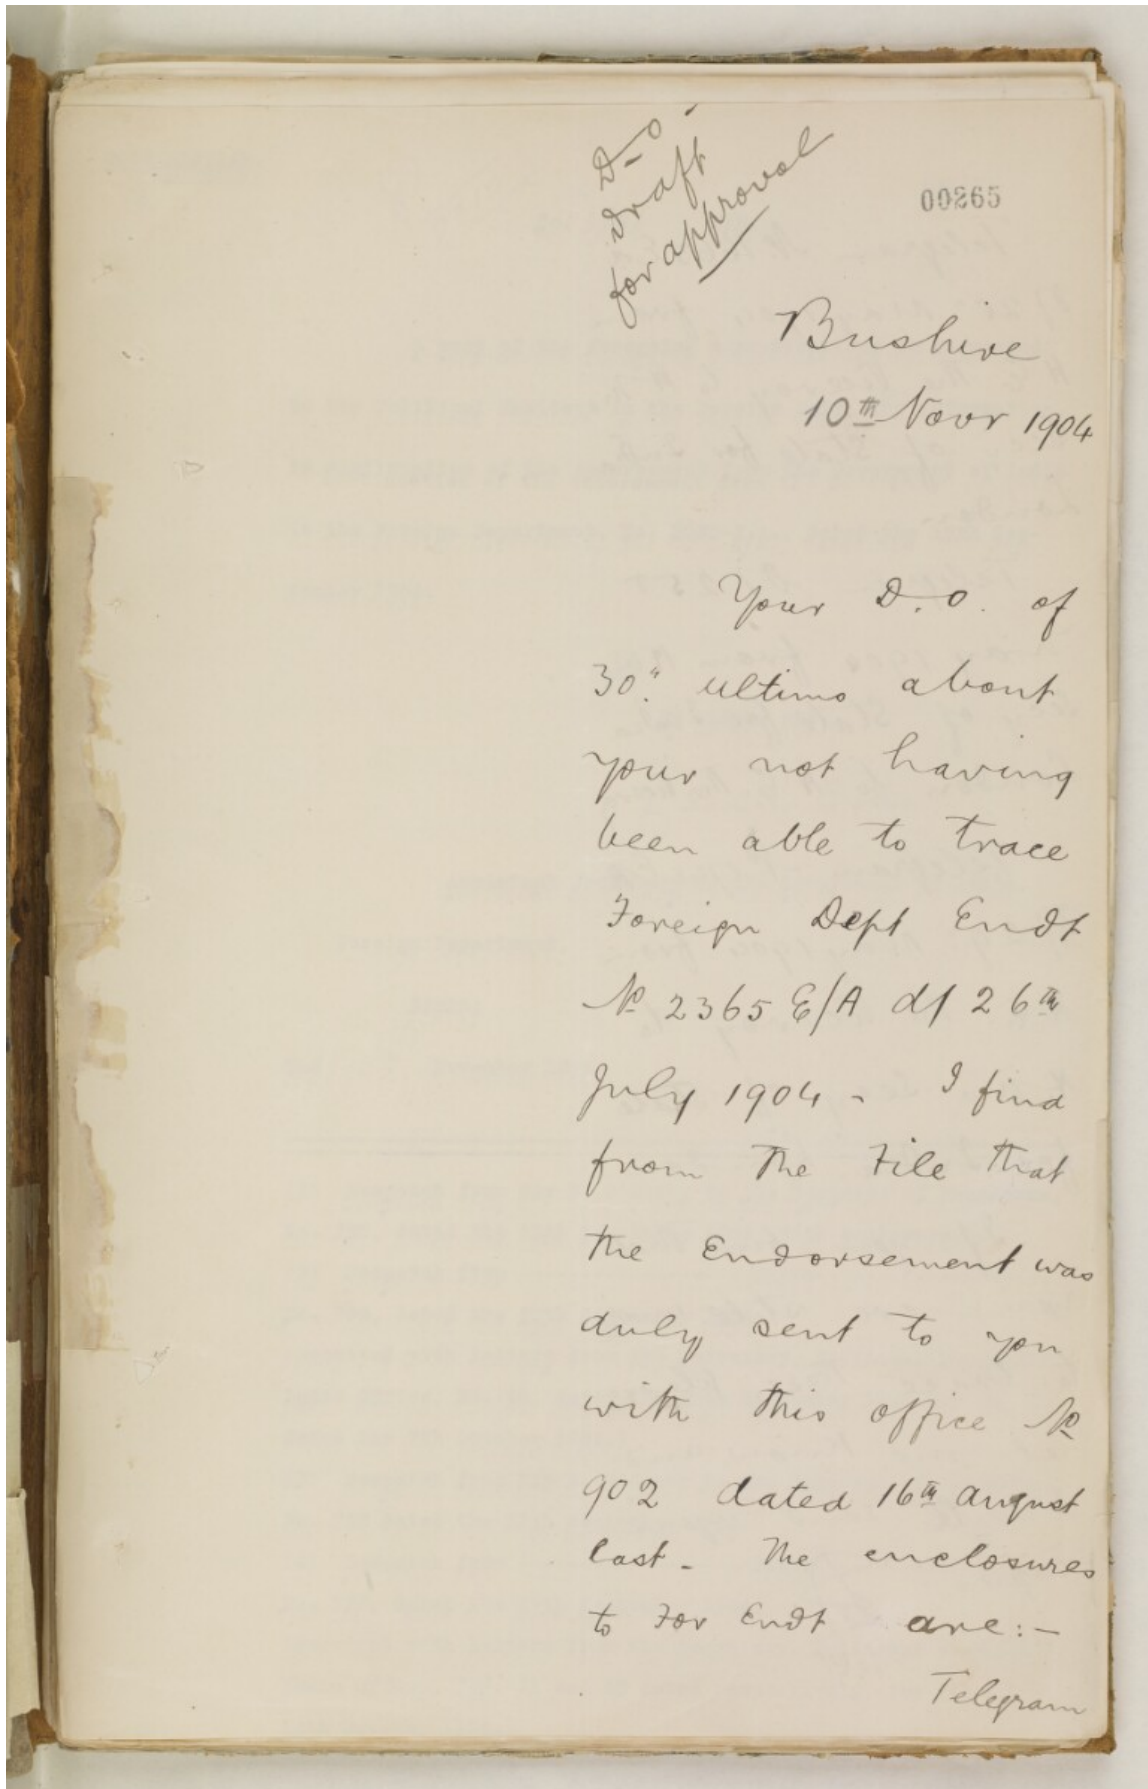 D-O.
Draft
for approval
00265
Bushire
10th Novr 1904
Your D.O. of
30" ultimo about
your not having
been able to trace
Foreign Dept Endt
No 2365 E/A d/ 26th
July 1904 - I find
from the File that
the Endorsement was
duly sent to you
with this office No
902 dated 16th August
last - The enclosures
to For Endt are:-
Telegram